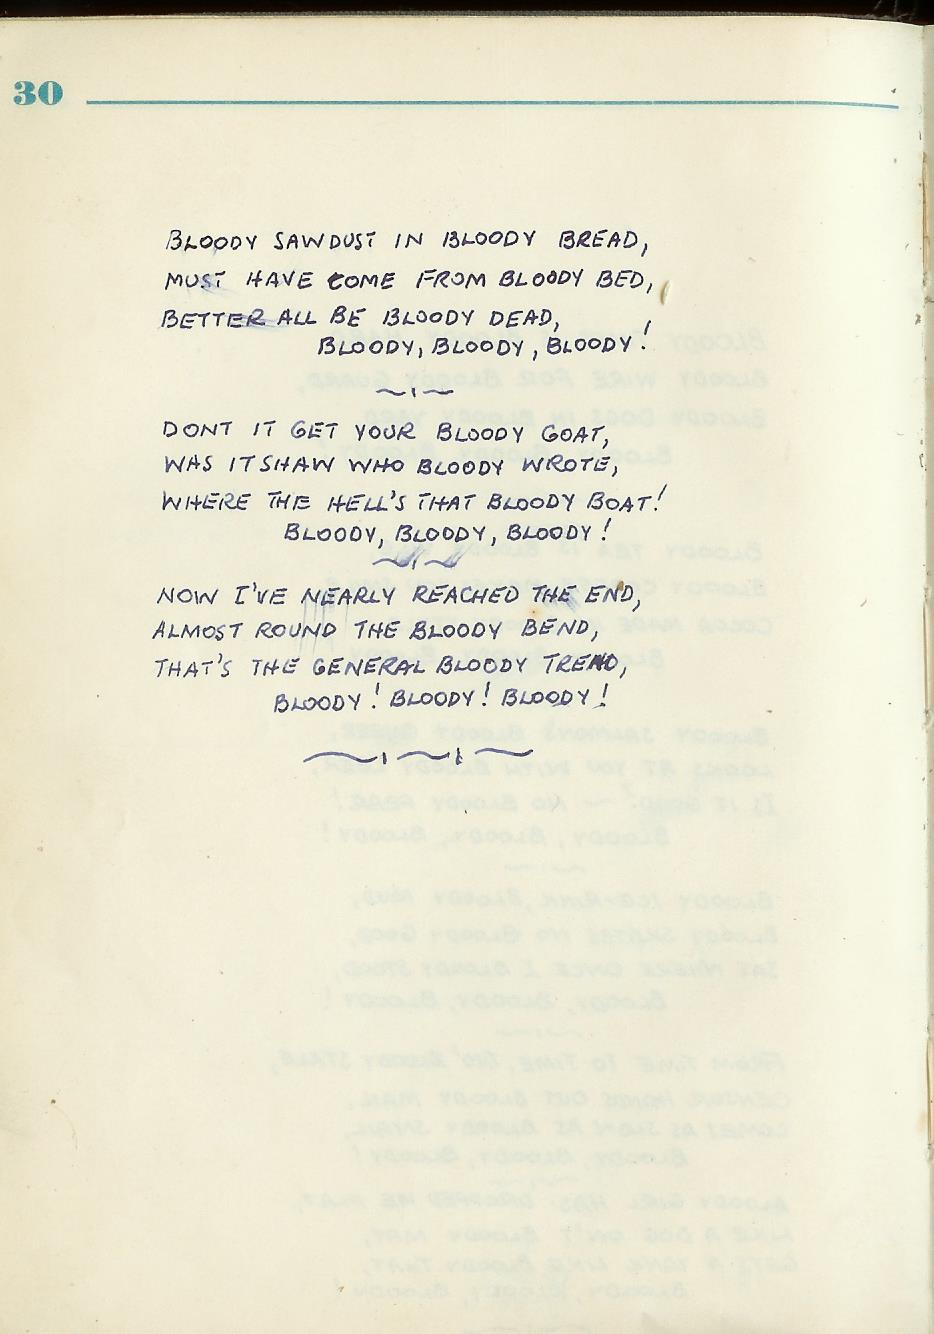 30
BLOODY SAWDUST IN BLOODY BREAD,
MUST HAVE COME FROM BLOODY BED,
BETTER ALL BE BLOODY DEAD,
BLOODY, BLOODY, BLOODY!
DONT IT GET YOUR BLOODY GOAT,
WAS IT SHAW WHO BLOODY WROTE,
WHERE THE HELL'S THAT BLOODY BOAT!
BLOODY, BLOODY, BLOODY!
NOW I'VE NEARLY REACHED THE END,
ALMOST ROUND THE BLOODY BEND,
THAT'S THE GENERAL BLOODY TREND,
BLOODY! BLOODY! BLOODY!